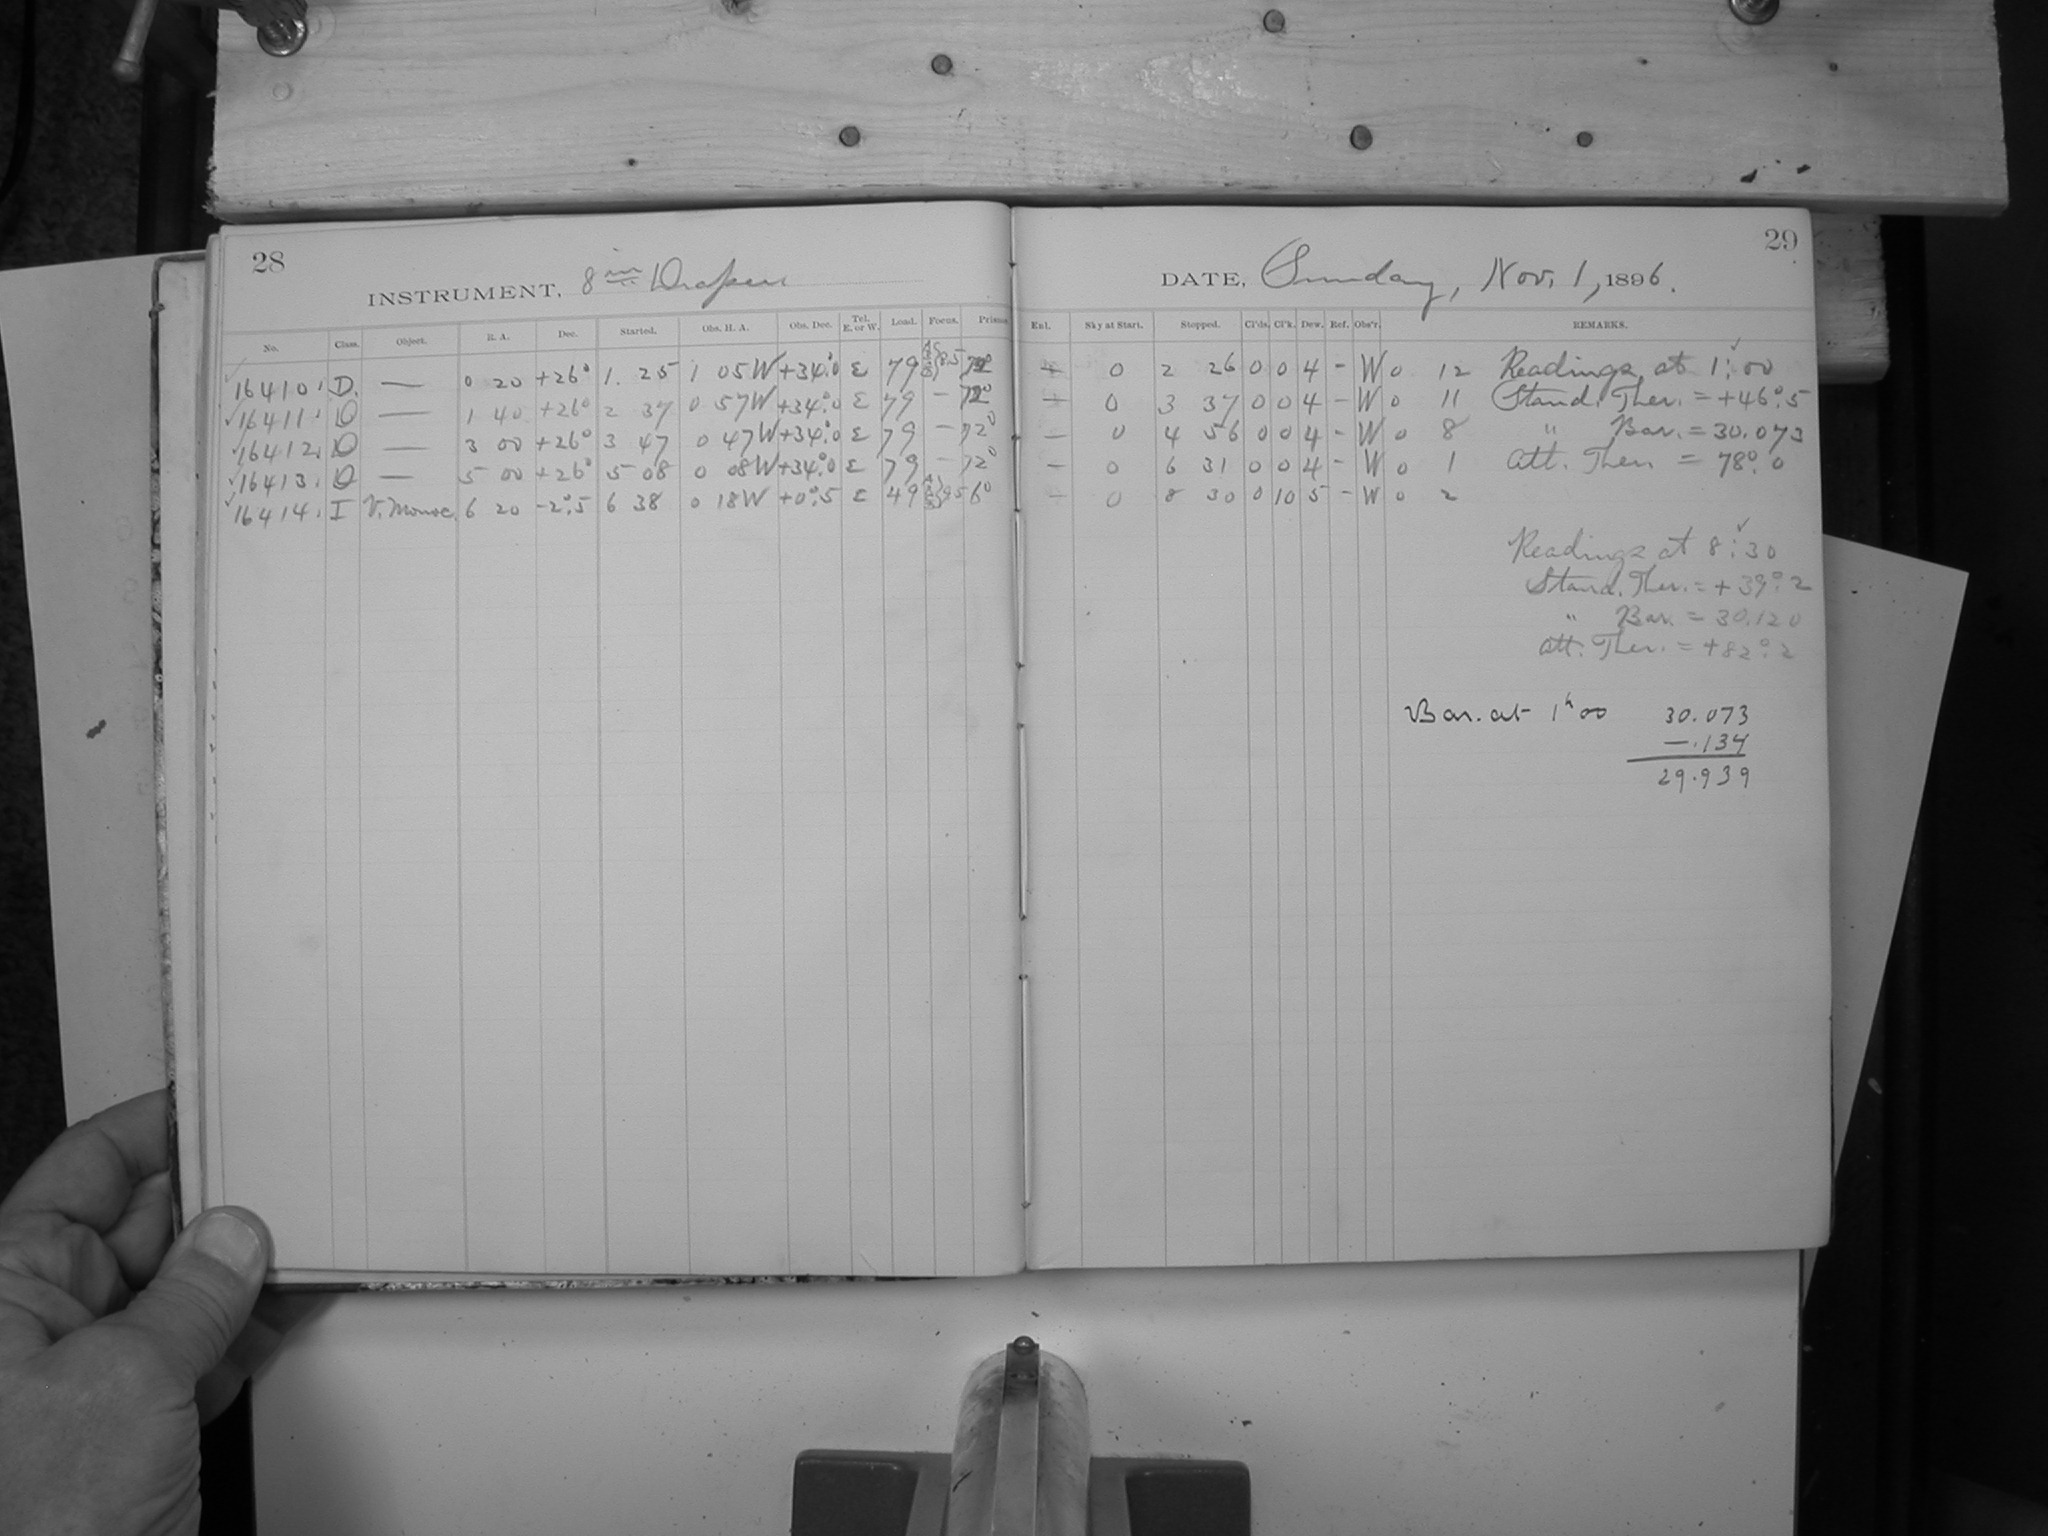 28
INSTRUMENT, 8 in Draper
No. Class. Object. R. A. Dec. Started. Obs. H. A. Obs. Dec. Tel. E. or W. Load. Focus. Prisms
16410. D. — 0 20 +26° 1. 25 1 05 W +34°.0 E 79 85 72°
16411. D — 1 40 +26° 2 37 0 57 W +34°.0 E 79 – 72°
16412. D — 3 00 +26° 3 47 0 47 W +34°.0 E 79 – 72°
16413. D — 5 00 +26° 5 08 0 08 W +34°.0 E 79 – 72°
16414. I V. Monoc. 6 20 -2°.5 6 38 0 18 W +0°.5 E 49 95 6°
29
DATE, Sunday, Nov. 1, 1896.
Enl. Sky at Start. Stopped. Cl'ds. Cl'k. Dew. Ref. Obs'r. REMARKS.
– 0 2 26 0 0 4 - W 0 12 Readings at 1:00
– 0 3 37 0 0 4 - W 0 11 Stand. Ther. = +46°.5
– 0 4 56 0 0 4 - W 0 8 " Bar. = 30.073
– 0 6 31 0 0 4 - W 0 1 Att. Ther. = 78°.0
– 0 8 30 0 10 5 - W 0 2
Readings at 8:30
Stand. Ther. = +39°.2
" Bar. = 30.120
Att. Ther. = +82°.2
Bar. at 1h 00 30.073
–.134
29.939